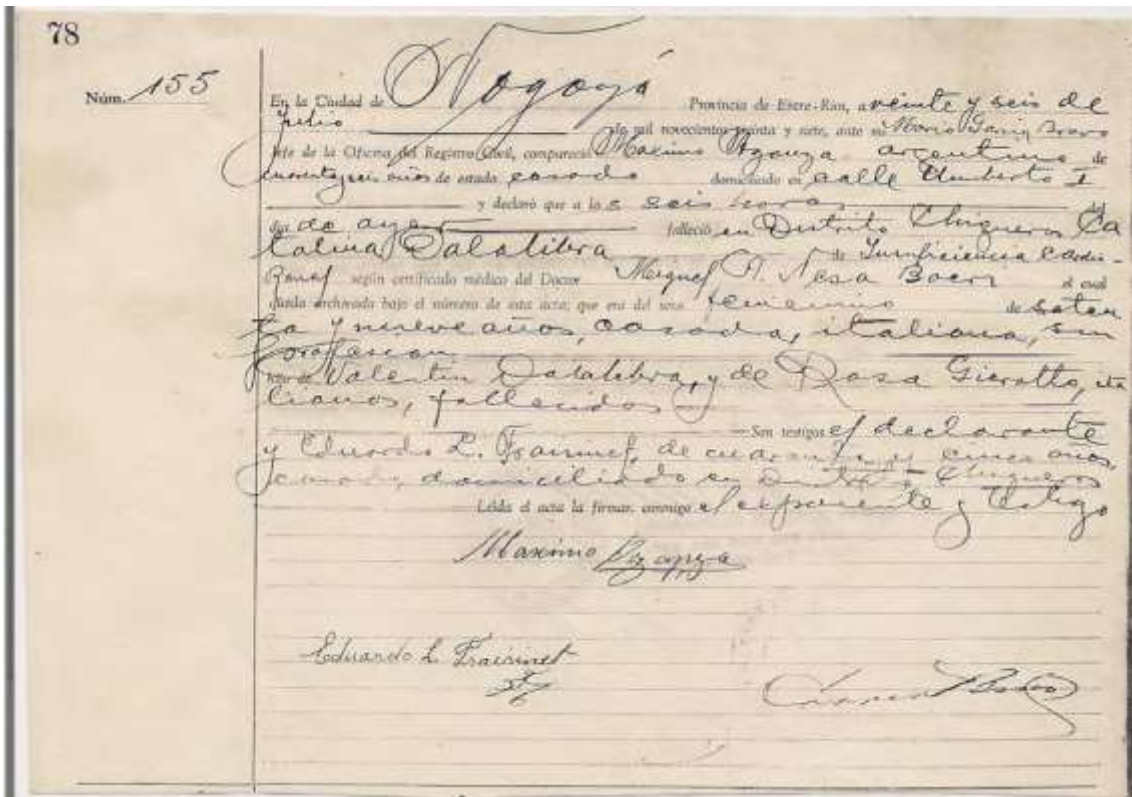 78
Núm. 155
En la Ciudad de Nogoyá Provincia de Entre-Ríos, a veinte y seis de
julio de mil novecientos treinta y siete, ante mi Mario
Jefe de la Oficina del Registro Civil, compareció Maximo argentino de
años de estado casado domiciliado en calle Umberto I
y declaró que a las seis horas del
día de ayer falleció en Distrito Chiqueros Ca
talina Dalalibra de Insuficiencia Cardi-
según certificado médico del Doctor Miguel A. el cual
queda archivado bajo el número de esta acta; que era del sexo femenino de seten
ta y nueve años, casada, italiana, sin
hija de Valentin Dalalibra, y de Rosa ita
lianos, fallecidos
Son testigos el declarante
y Eduardo L. de cuarenta y cinco años,
casado, domiciliado en Distrito Chiqueros
Leída el acta la firman, conmigo el exponente y testigo
Maximo
Eduardo L. Fraisinet